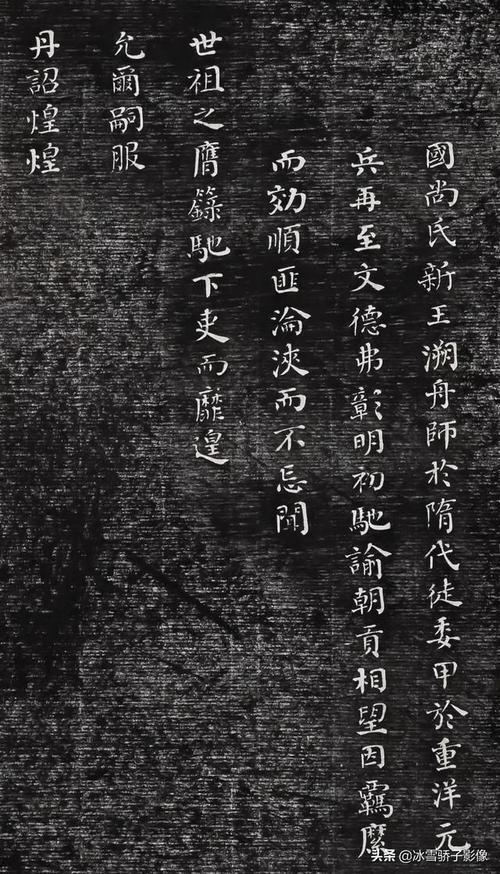 國尚氏新王溯舟師於隋代徒委甲於重洋元
兵再至文德弗彰明初馳諭朝貢相望因羈縻
而効順匪淪浹而不忘聞
世祖之膺籙馳下吏而靡遑
允爾嗣服
丹詔煌煌
头条 @冰雪骄子影像